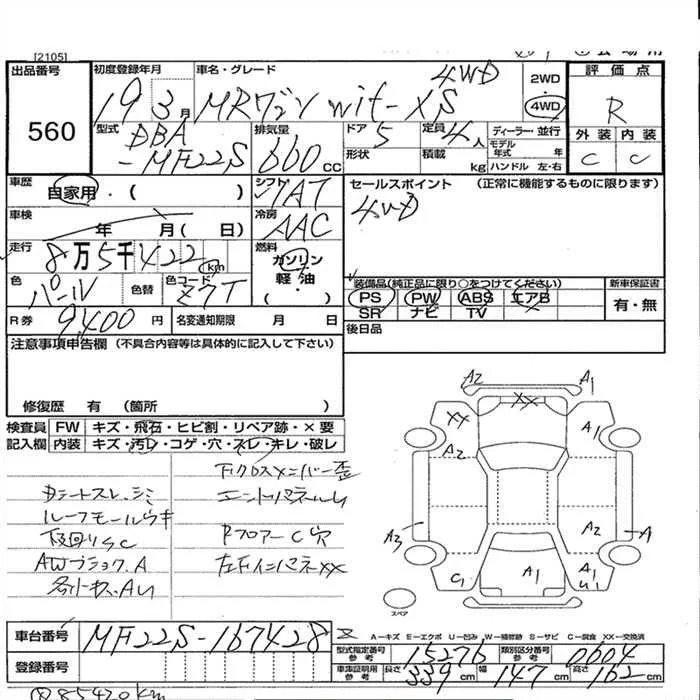 [2105]
出品番号
560
初度登録年月
19 3 月
車名・グレード
4WD
MRワゴン wit-XS
2WD
4WD
評価点
R
外装 内装
C C
型式
DBA
-MF22S
排気量
660 CC
ドア
5
定員
4人
ディーラー・並行
モデル年式 年
形状
積載 kg
ハンドル 左・右
車歴
自家用・( )
シフト
IAT
セールスポイント (正常に機能するものに限ります)
4WD
車検
年 月( 日)
冷房
AAC
走行
8万5千422 km
燃料
ガソリン
軽油
( ・ )
色
パール
色替
色コード
Z7T
装備品(純正品に限り○をつけてください)
新車保証書
PS PW ABS エアB
SR ナビ TV
有・無
R券
9,400 円
名変通知期限 月 日
後日品
注意事項申告欄 (不具合内容等は具体的に記入して下さい)
修復歴 有 (箇所 )
検査員
記入欄
FW キズ・飛石・ヒビ割・リペア跡・×要
内装 キズ・汚レ・コゲ・穴・スレ・キレ・破レ
Dシートスレ、シミ
ルーフモールウキ
下回りSC
AWブラック.A
下クロスメンバー歪
Pフロアー C 穴
A2 A1
XX XX
A2 A1
A3 A2 A
C1 A1 A1
U1
スペア
A-キズ E-エクボ U-凹み W-補修跡 S-サビ C-腐食 XX-交換済
車台番号
MF22S-167428
登録番号
型式指定番号
参考
15276
類別区分番号
参考
0604
車庫証明用
参考
長さ 339cm
幅 147cm
高さ 162cm
85420km